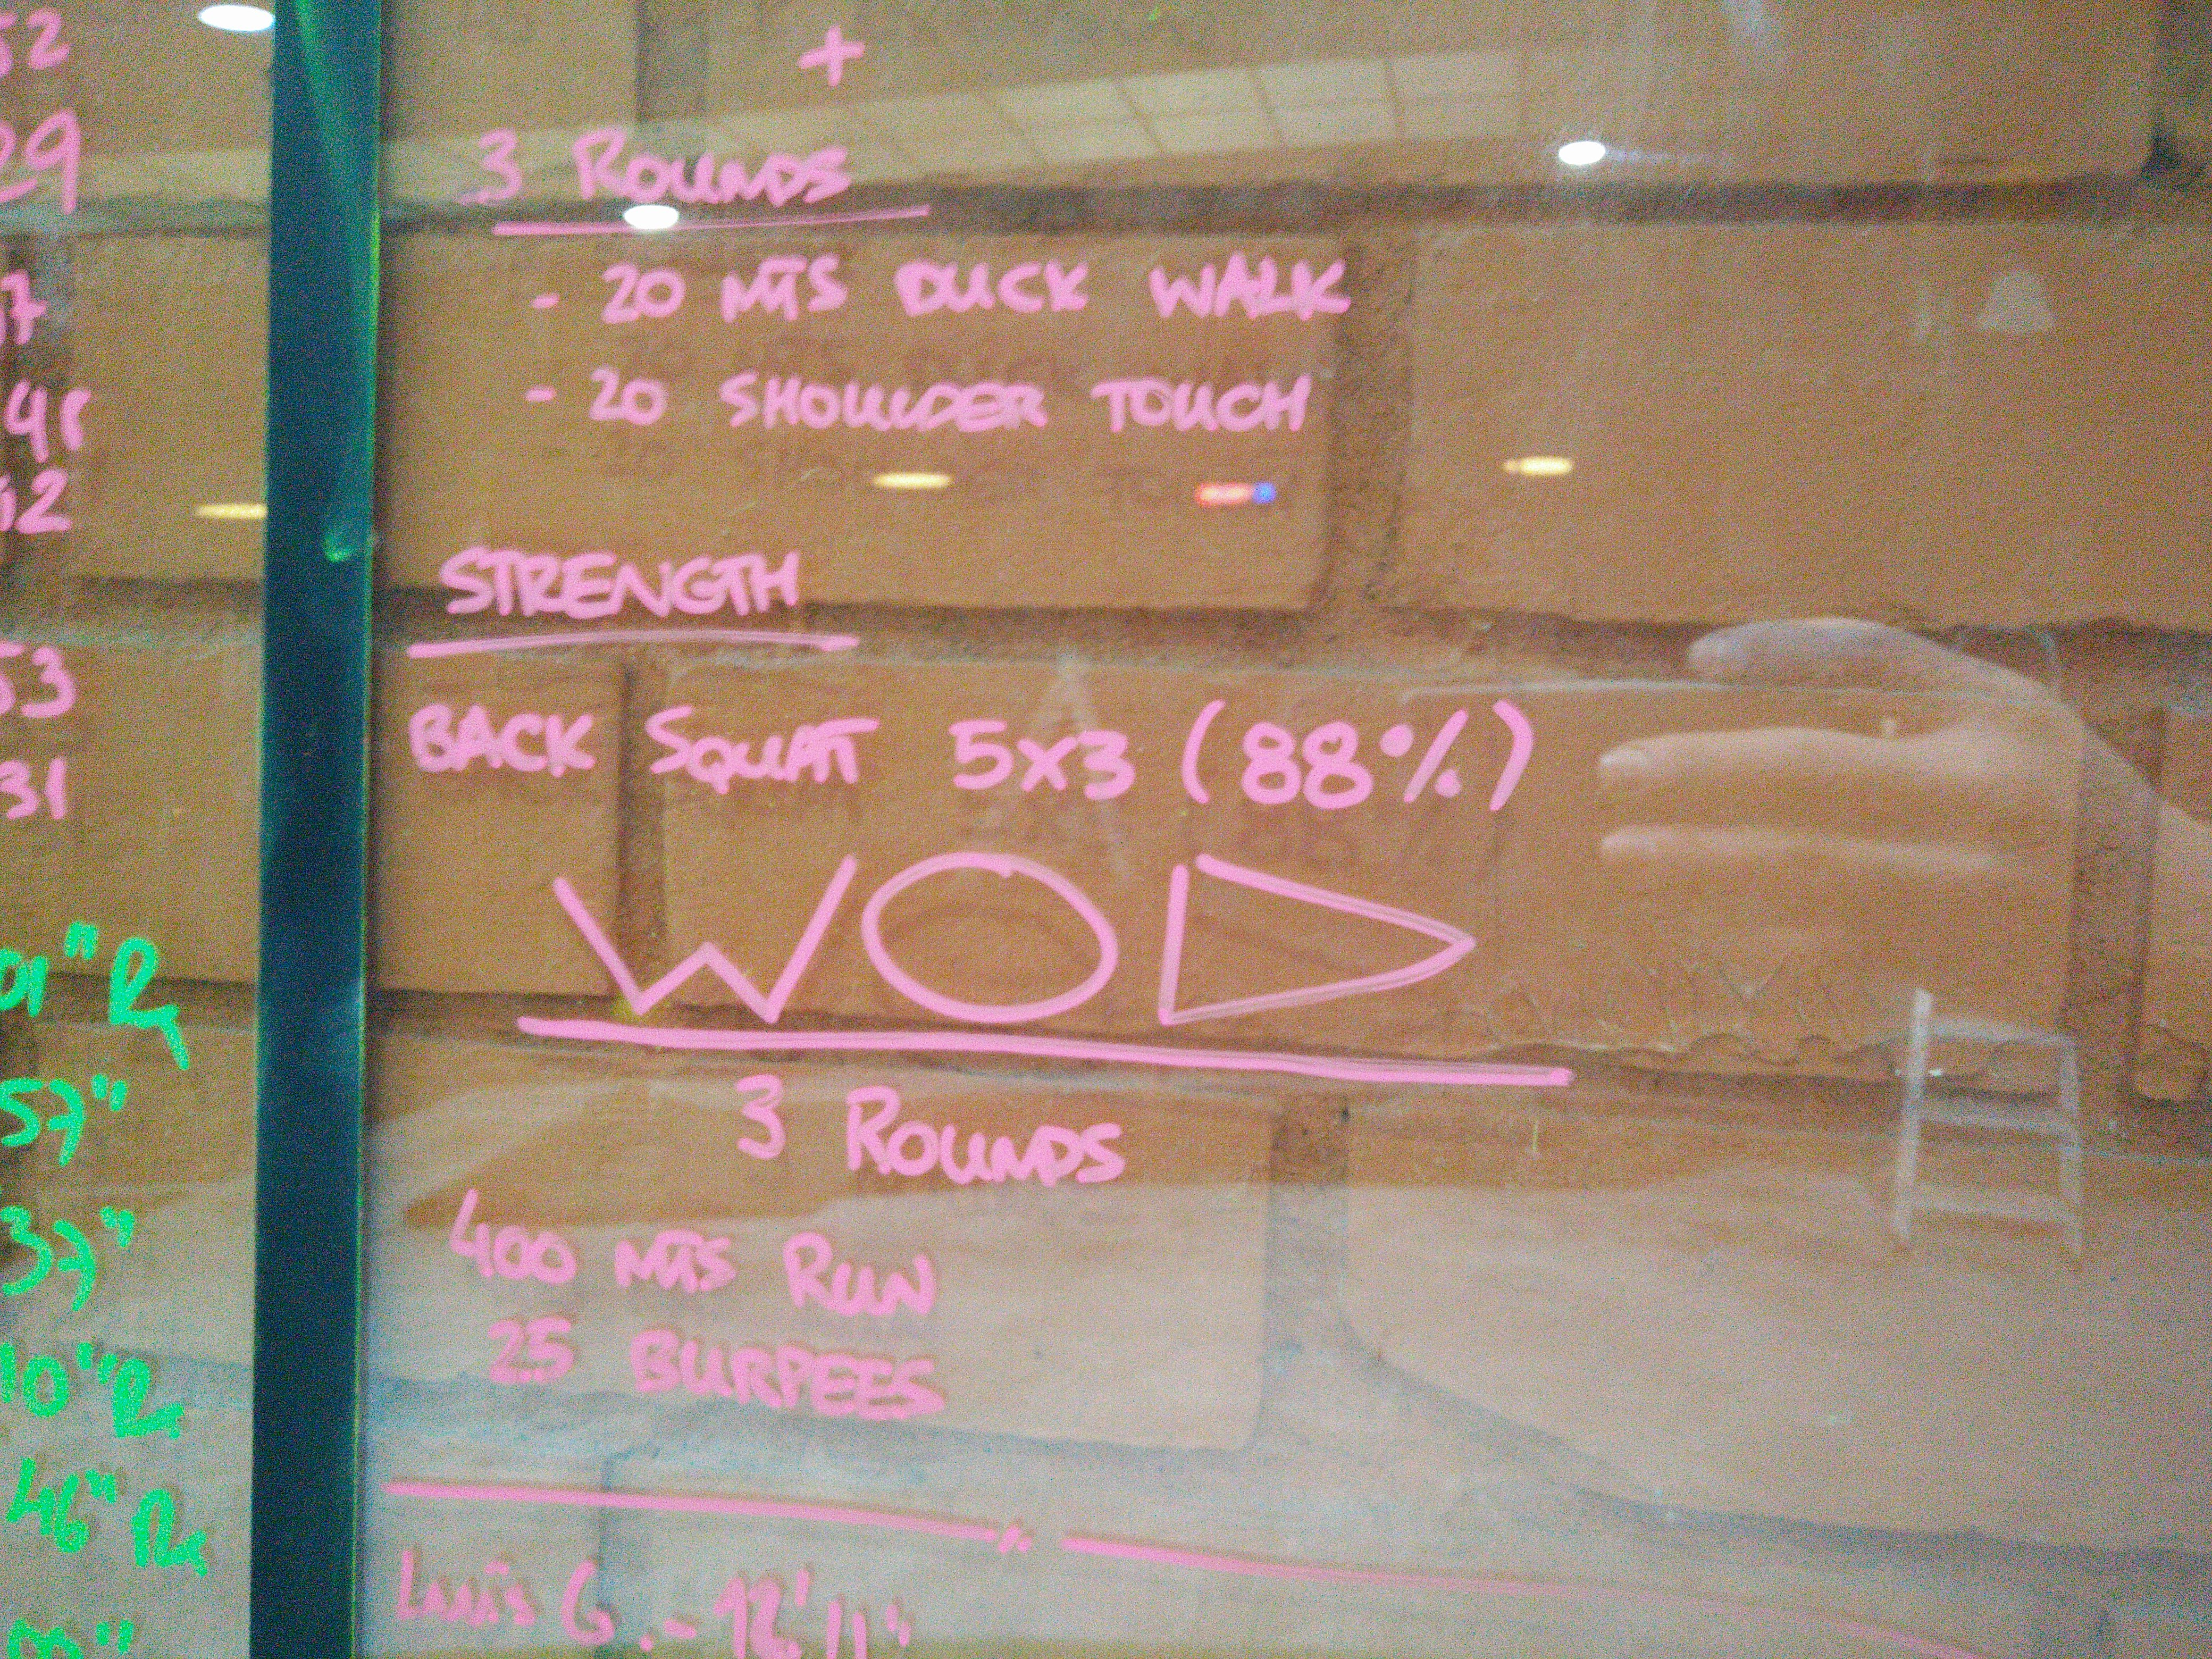 +
3 ROUNDS
- 20 MTS DUCK WALK
- 20 SHOULDER TOUCH
STRENGTH
BACK SQUAT 5x3 (88%)
WOD
3 ROUNDS
400 MTS RUN
25 BURPEES
Luis G.- 12'11"
52
29
7
48
52
53
31
01" Rx
57"
37"
10" Rx
46" Rx